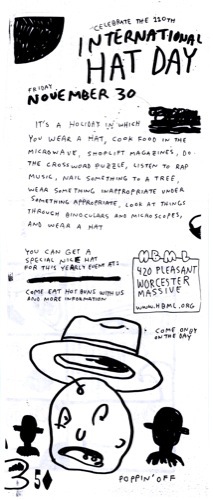 CELEBRATE THE 110TH
INTERNATIONAL
HAT DAY
FRIDAY
NOVEMBER 30
IT'S A HOLIDAY IN WHICH
YOU WEAR A HAT, COOK FOOD IN THE
MICROWAVE, SHOPLIFT MAGAZINES, DO
THE CROSSWORD PUZZLE, LISTEN TO RAP
MUSIC, NAIL SOMETHING TO A TREE,
WEAR SOMETHING INAPPROPRIATE UNDER
SOMETHING APPROPRIATE, LOOK AT THINGS
THROUGH BINOCULARS AND MICROSCOPES,
AND WEAR A HAT
YOU CAN GET A
SPECIAL NICE HAT
FOR THIS YEARLY EVENT AT:
H.B.M.L.
420 PLEASANT
WORCESTER
MASSIVE
WWW.HBML.ORG
COME EAT HOT BUNS WITH US
AND MORE INFORMATION
COME ONLY
ON THE DAY
5♦
POPPIN' OFF